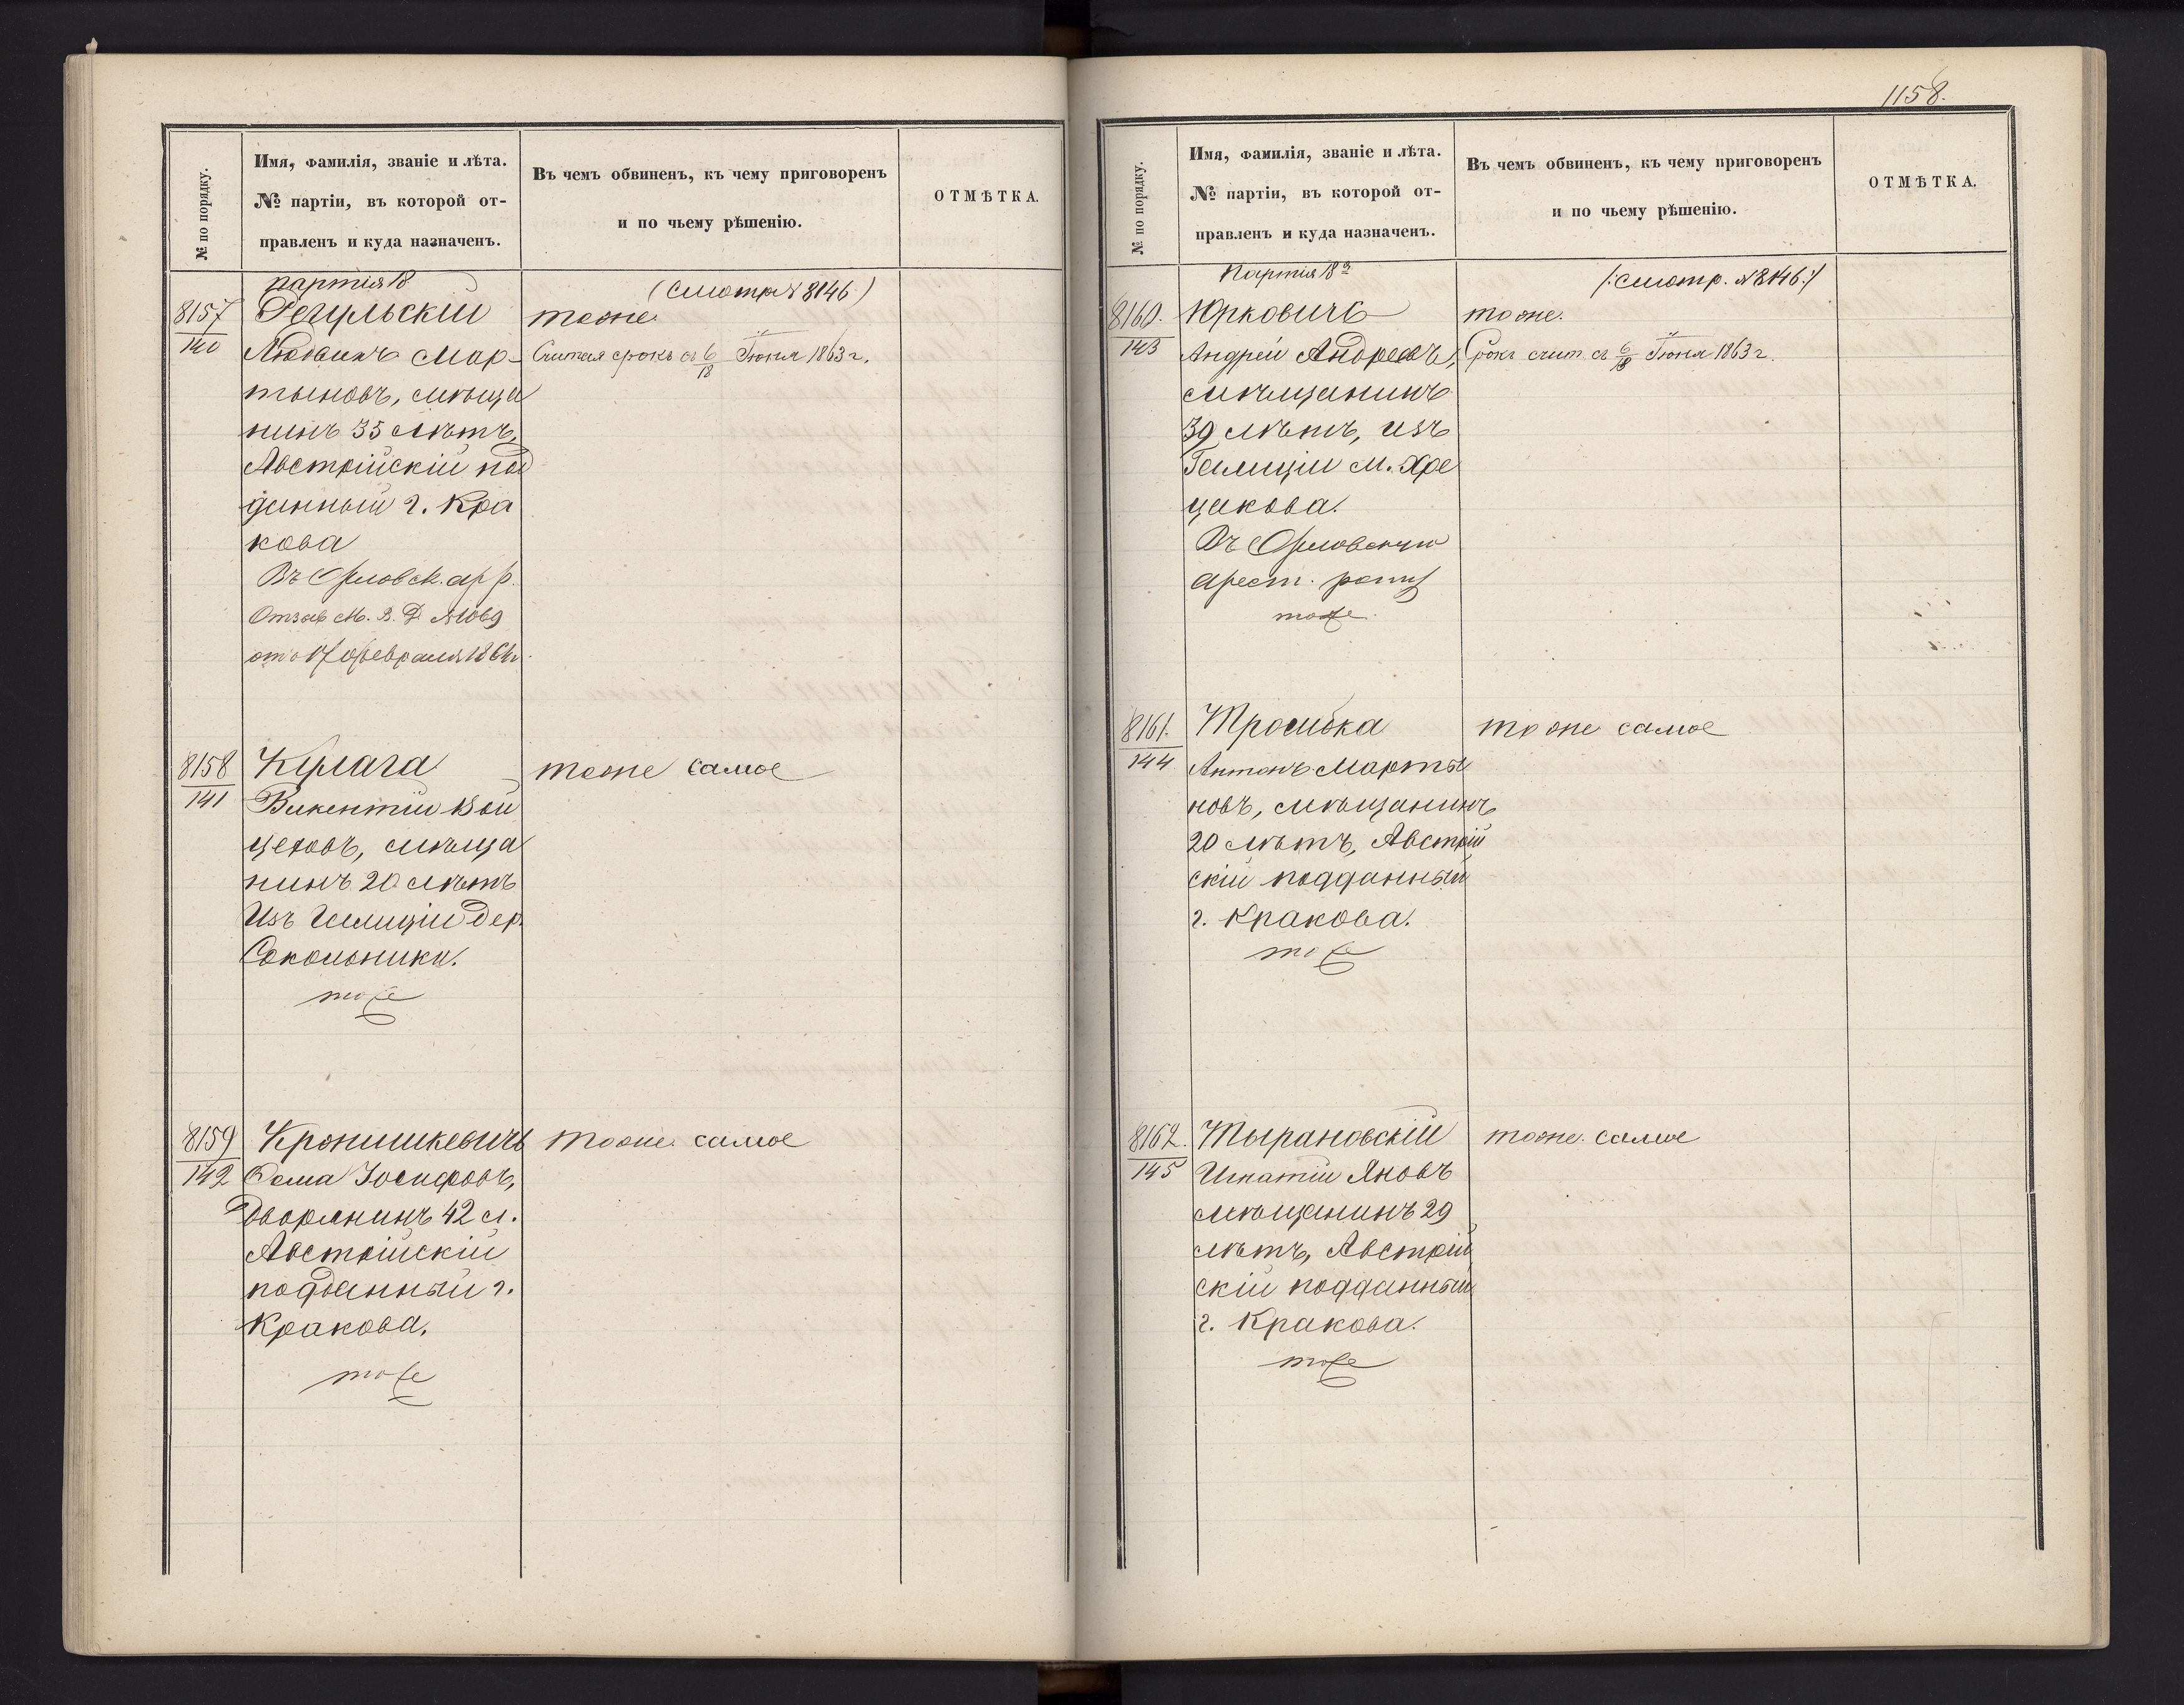 № по порядку.
Имя, фамилія, званіе и лѣта.
№ партіи, въ которой от-
правленъ и куда назначенъ.
Въ чемъ обвиненъ, къ чему приговоренъ
и по чьему рѣшенію.
ОТМѢТКА.
партія 18
(Смотр № 8146)
8157
140
Регульскій
тоже.
Людвикъ Мар-
Считая срокъ съ 6/18 Іюня 1863 г.
тыновъ, мѣща
нинъ 35 лѣтъ,
Австрійскій под
данный г. Кра
кова
Въ Орловск. ар р.
Отзывъ М. В. Д № 1069
отъ 17 февраля 1864 г.
8158
141
Кулага
тоже самое
Викентій Вой
цеховъ, мѣща
нинъ 20 лѣтъ
Изъ Галиціи дер.
Сокольники.
тоже
8159
142
Кронишкевичъ
тоже самое
Фома Іосифовъ,
Дворянинъ 42 л.
Австрійскій
подданный г.
Кракова.
тоже
1158.
№ по порядку.
Имя, фамилія, званіе и лѣта.
№ партіи, въ которой от-
правленъ и куда назначенъ.
Въ чемъ обвиненъ, къ чему приговоренъ
и по чьему рѣшенію.
ОТМѢТКА.
Партія 18 я
/:Смотр. № 8146:/
8160.
143
Юрковичъ
тоже.
Андрей Андреевъ,
Срокъ счит. съ 6/18 Іюня 1863 г.
мѣщанинъ
39 лѣтъ, изъ
Галиціи м. Хре
цакова.
Въ Орловскую
арест. роту
тоже.
8161.
144
Тромбка
тоже самое
Антонъ Марты
новъ, мѣщанинъ
20 лѣтъ, Австрій
скій подданный
г. Кракова.
тоже
8162.
145
Тырановскій
тоже самое
Игнатій Яновъ
мѣщанинъ 29
лѣтъ, Австрій
скій подданный
г. Кракова.
тоже